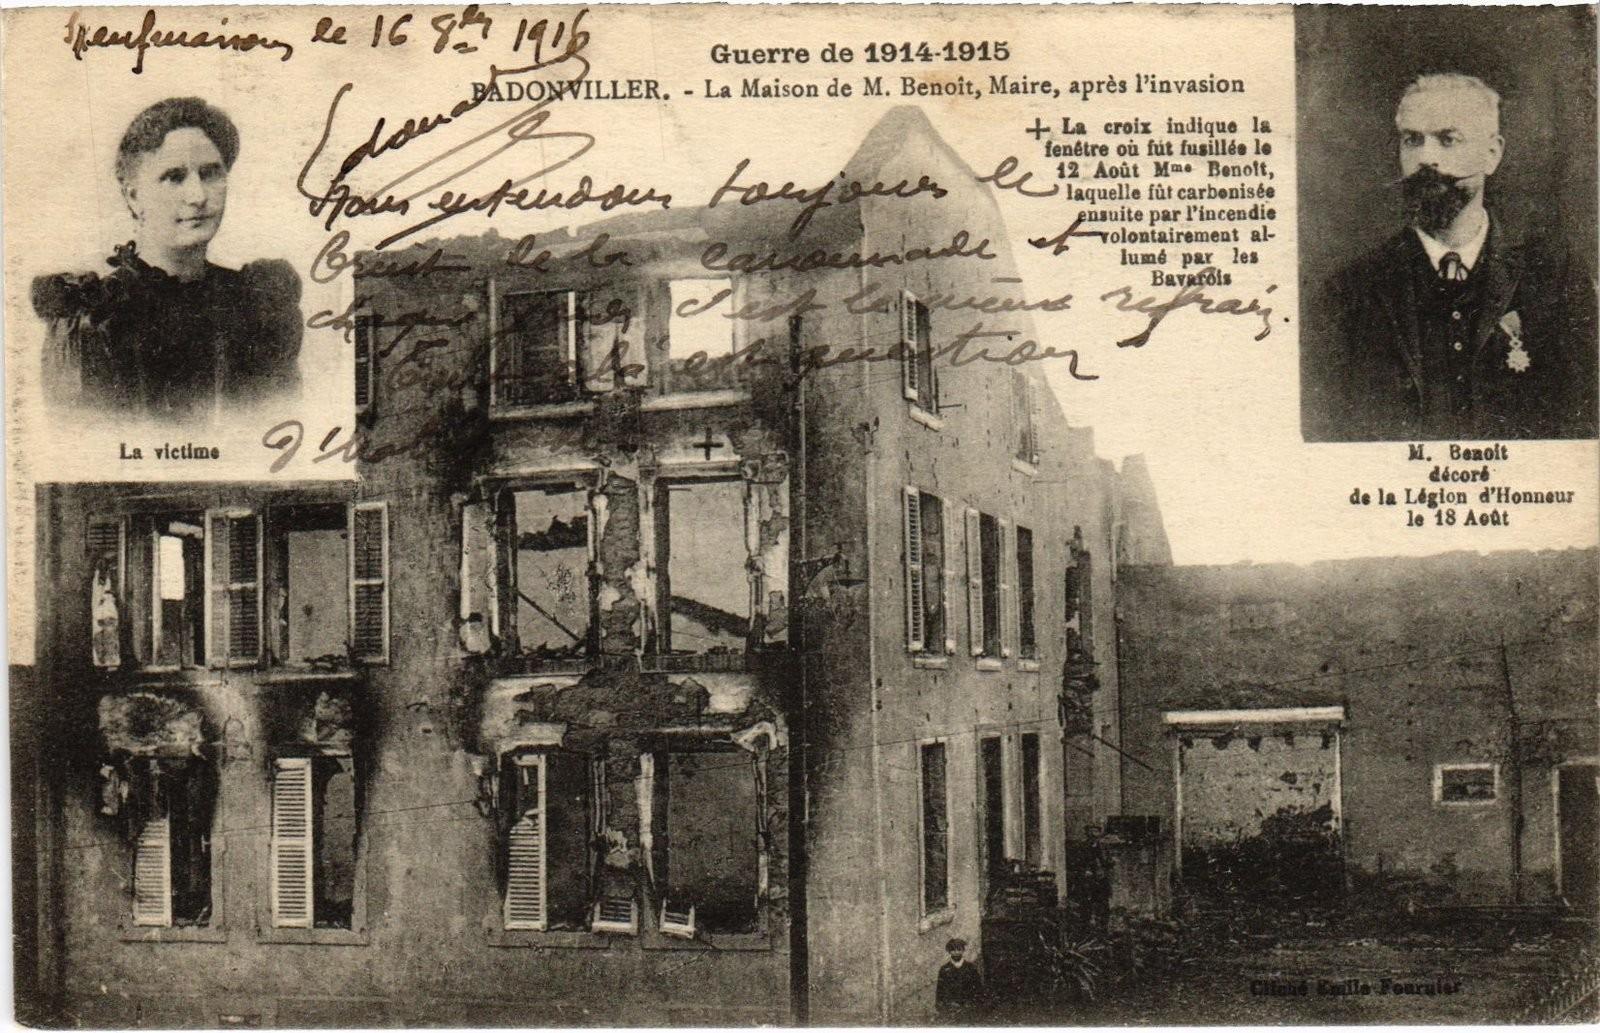 Neufmaisons le 16 8bre 1916
Guerre de 1914-1915
BADONVILLER. - La Maison de M. Benoît, Maire, après l'invasion
+ La croix indique la
fenêtre où fut fusillée le
12 Août Mme Benoît,
laquelle fût carbonisée
ensuite par l'incendie
volontairement al-
lumé par les
Bavarois
Edouard
Nous entendons toujours le
bruit de la canonnade et
chaque jour c'est le même refrain.
est question
La victime
+
M. Benoit
décoré
de la Légion d'Honneur
le 18 Août
Cliché Emile Fournier